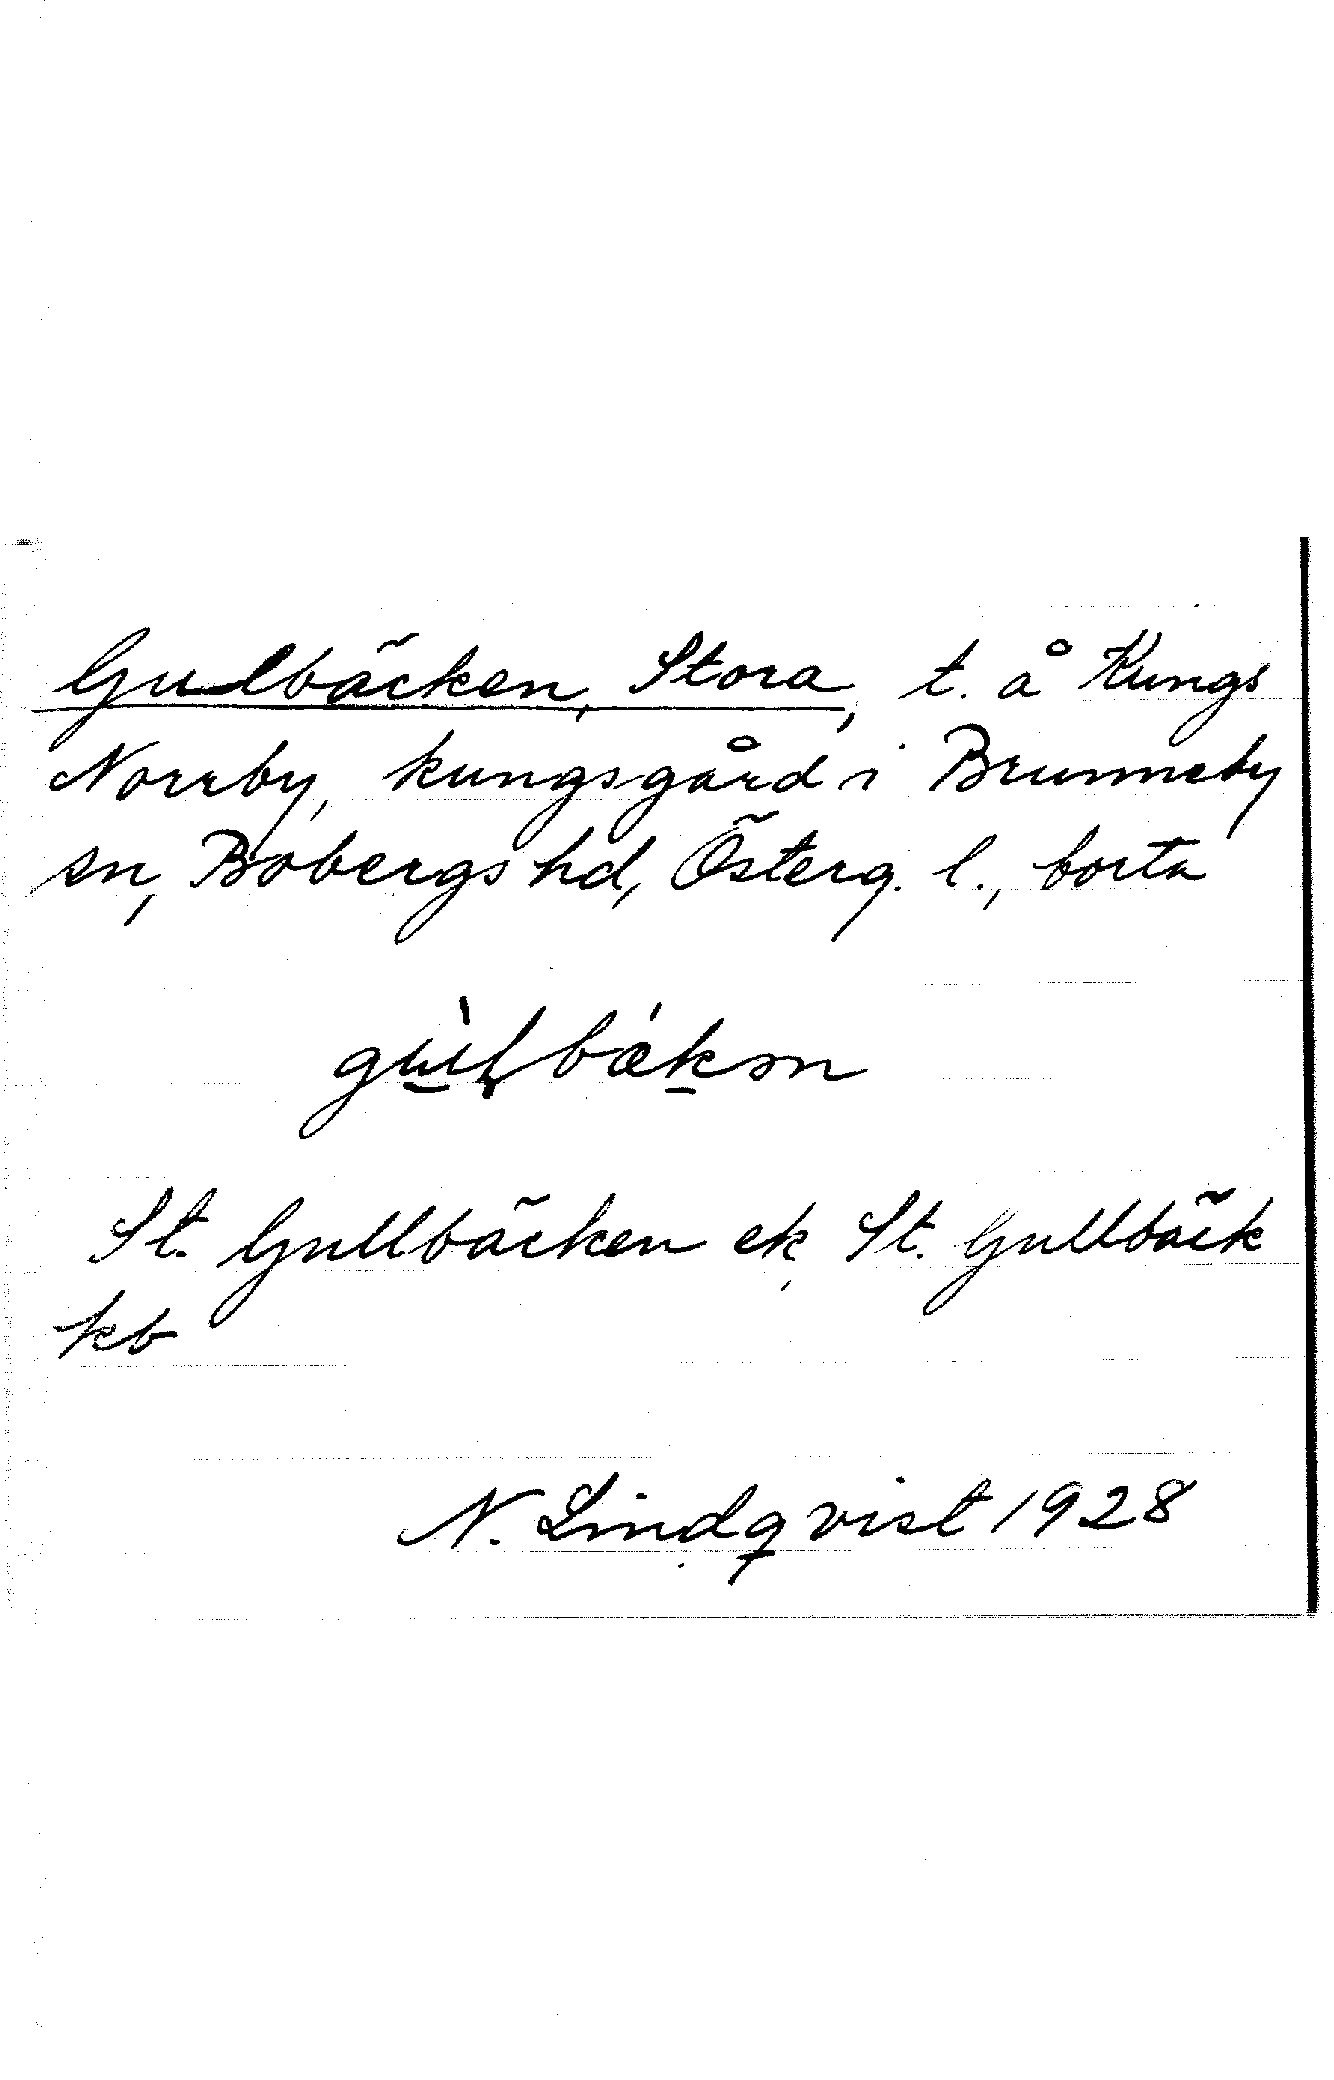 Gulbäcken, Stora, t. å Kungs
Norrby, kungsgård i Brunneby
sn, Bobergs hd, Österg. l., borta
St. Gullbäcken ek, St. Gullbäck
kb
N. Lindqvist 1928